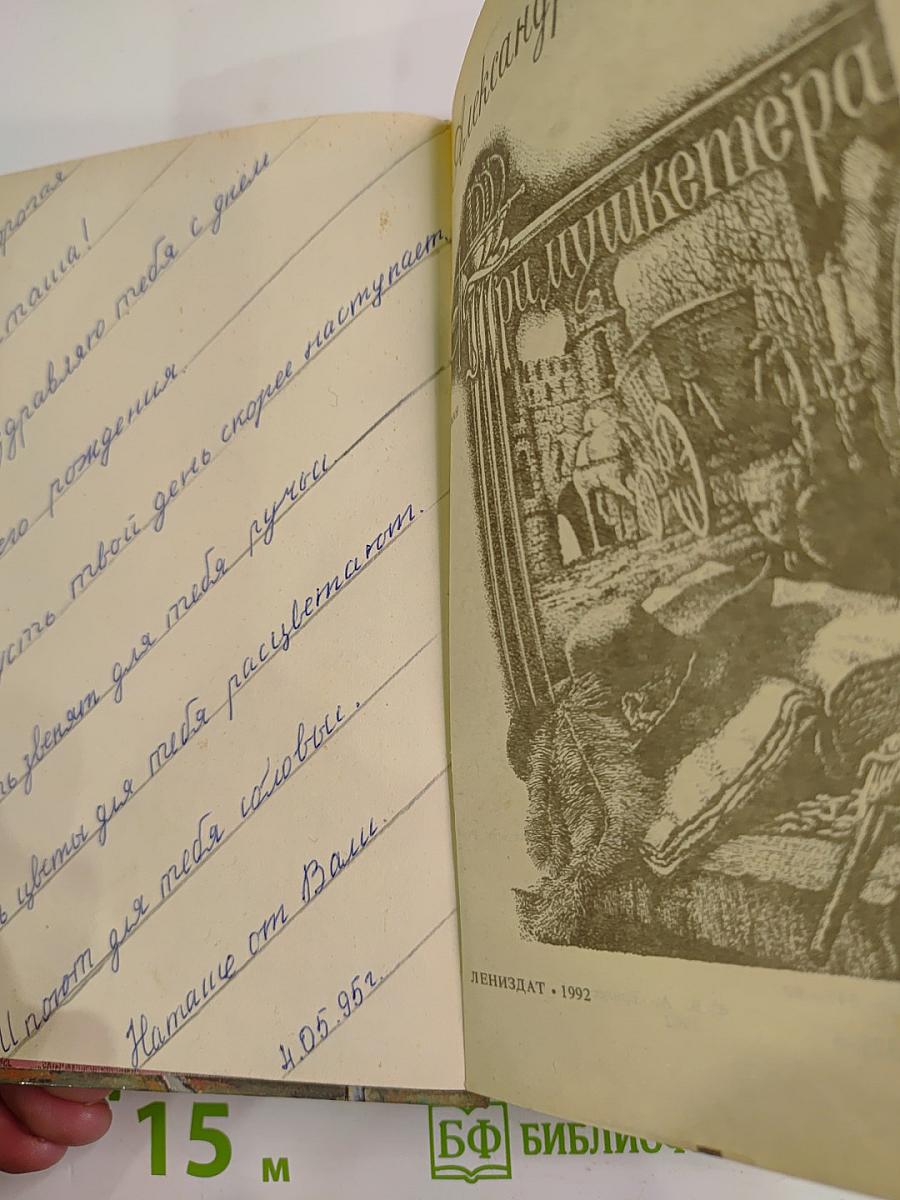 орогая
таша!
здравляю тебя с днем
его рождения.
усть твой день скорее наступает.
ть звенят для тебя ручьи
ь цветы для тебя расцветают.
И поют для тебя соловьи.
Наташе от Вали.
4.05.95г.
Александр
Три мушкетера
ЛЕНИЗДАТ • 1992
15 м
БФ БИБЛИО